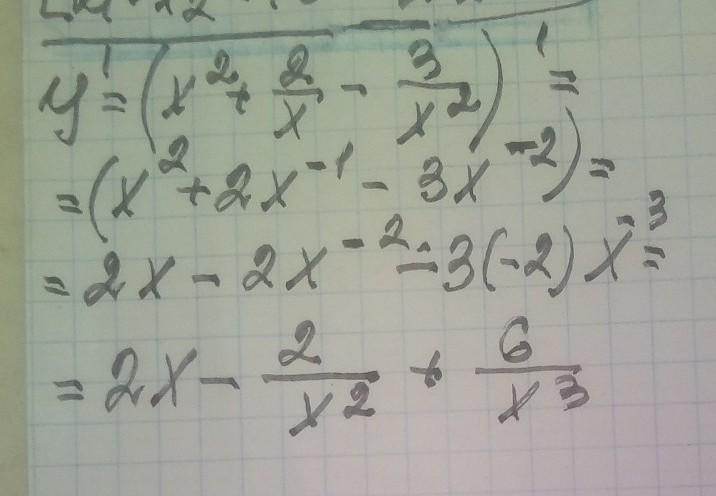 y' = (x² + 2/x - 3/x²)' =
= (x² + 2x⁻¹ - 3x⁻²) =
= 2x - 2x⁻² - 3(-2)x⁻³ =
= 2x - 2/x² + 6/x³